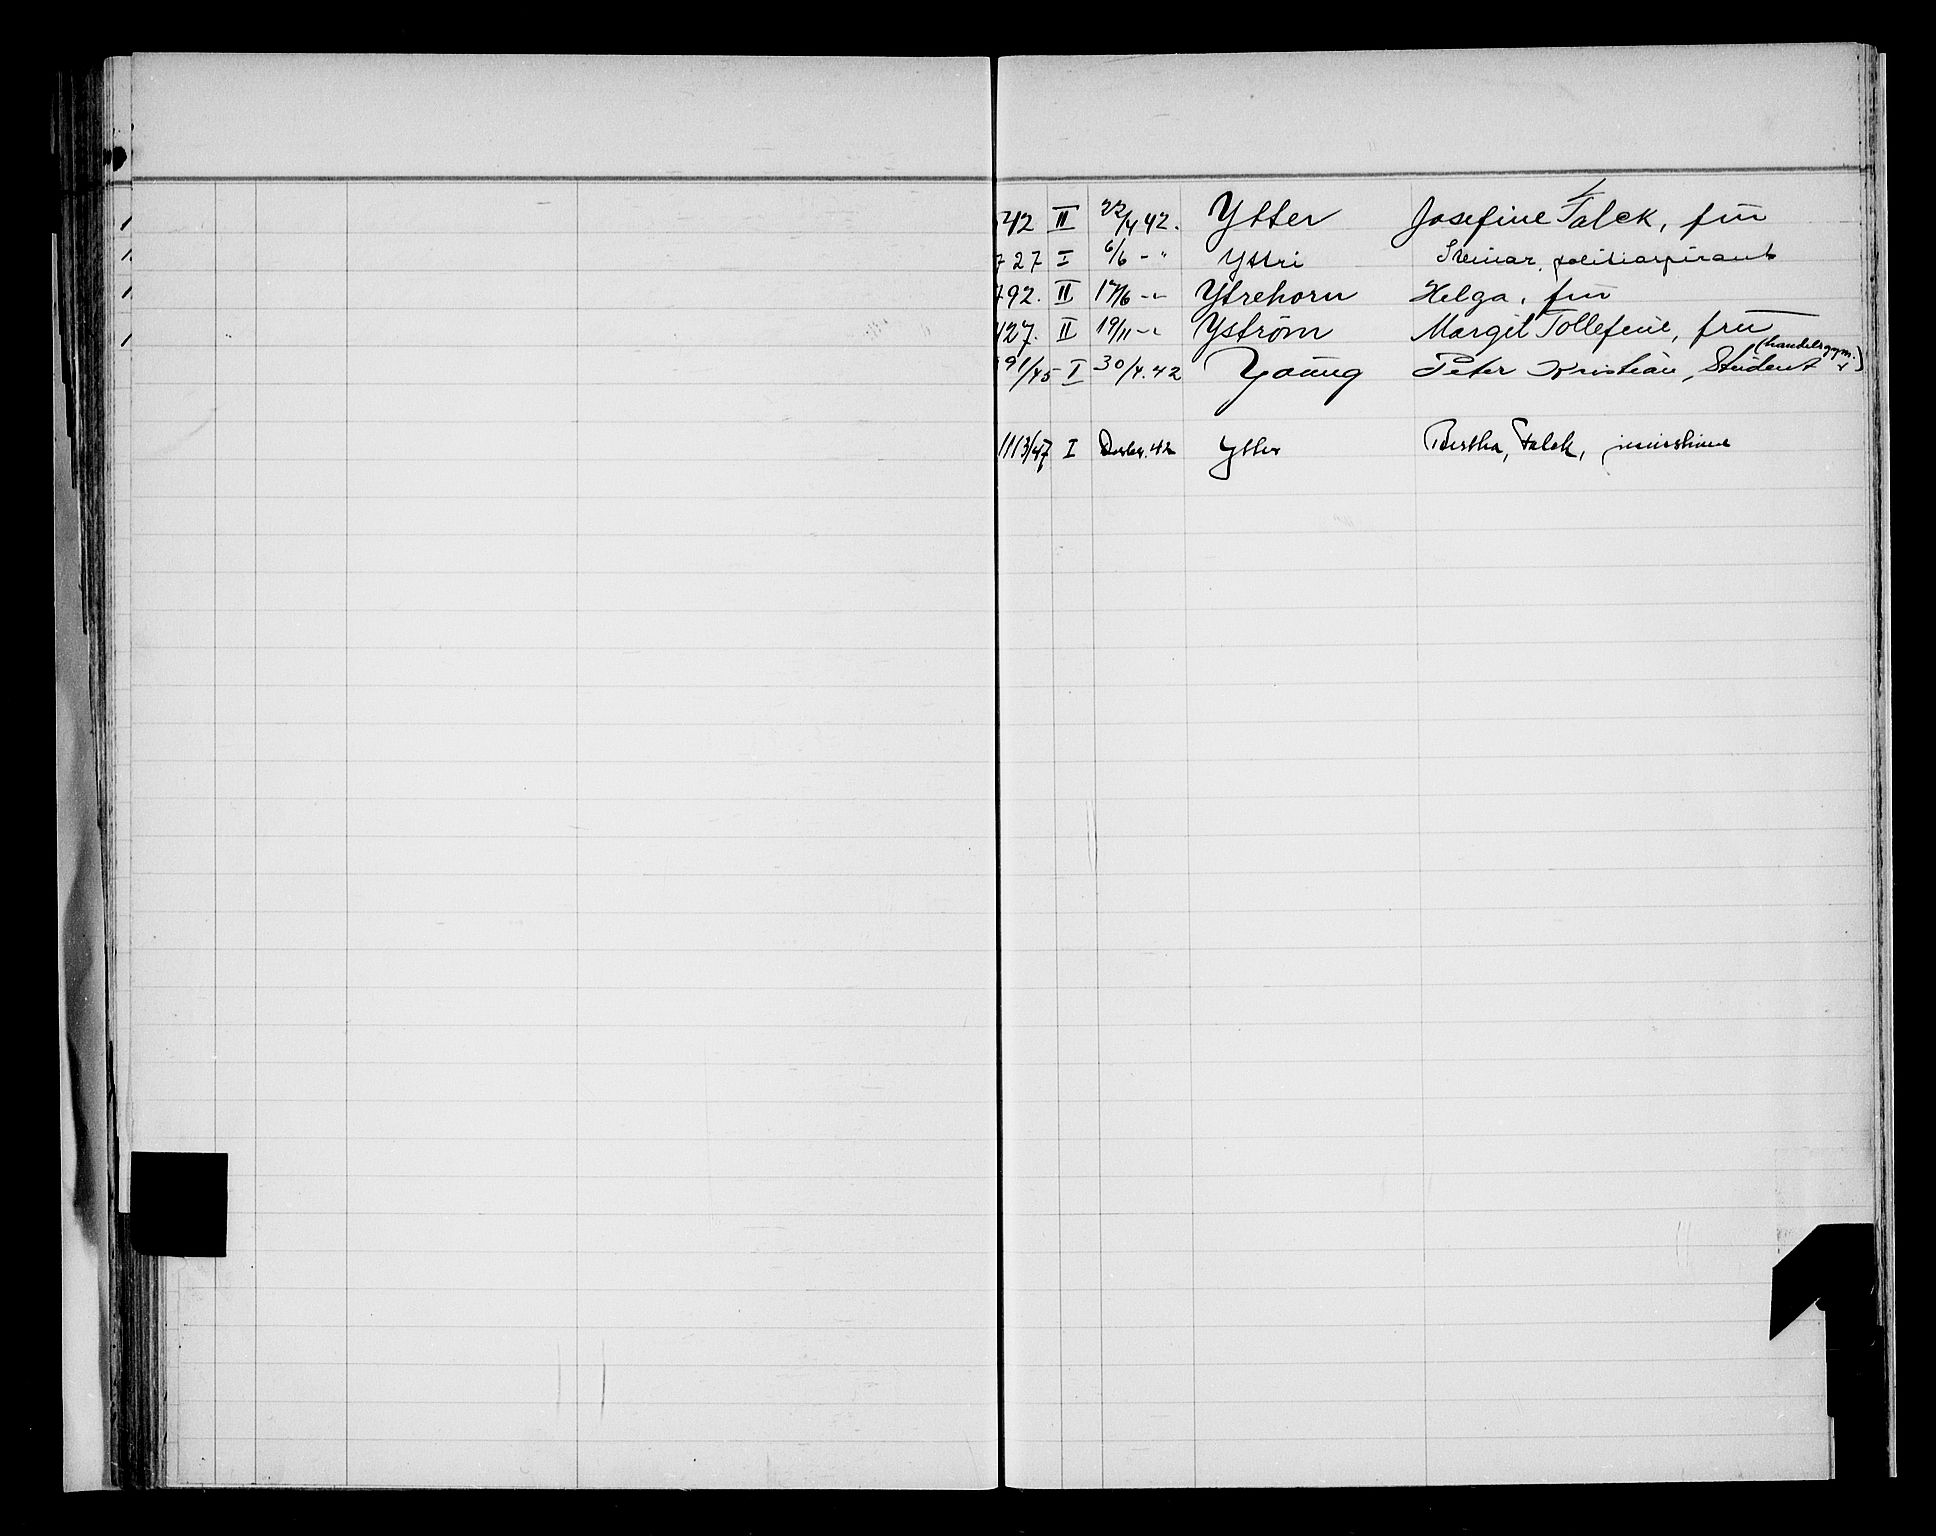 542 II 22/4 42. Ytter Josefine Falck, frü
727 I 6/6 - " Yttri Steinar, politiaspirant
792. II 17/6 -"- Ytrehorn Helga, frü
427. II 19/11 -"- Yström Margit Tollefine, frü
91/45 I 30/4.42 Yoüng Peter Kristian, Stüdent (handelsgym.)
1113/47 I Desbr. 42 Ytter Bertha, Falck,